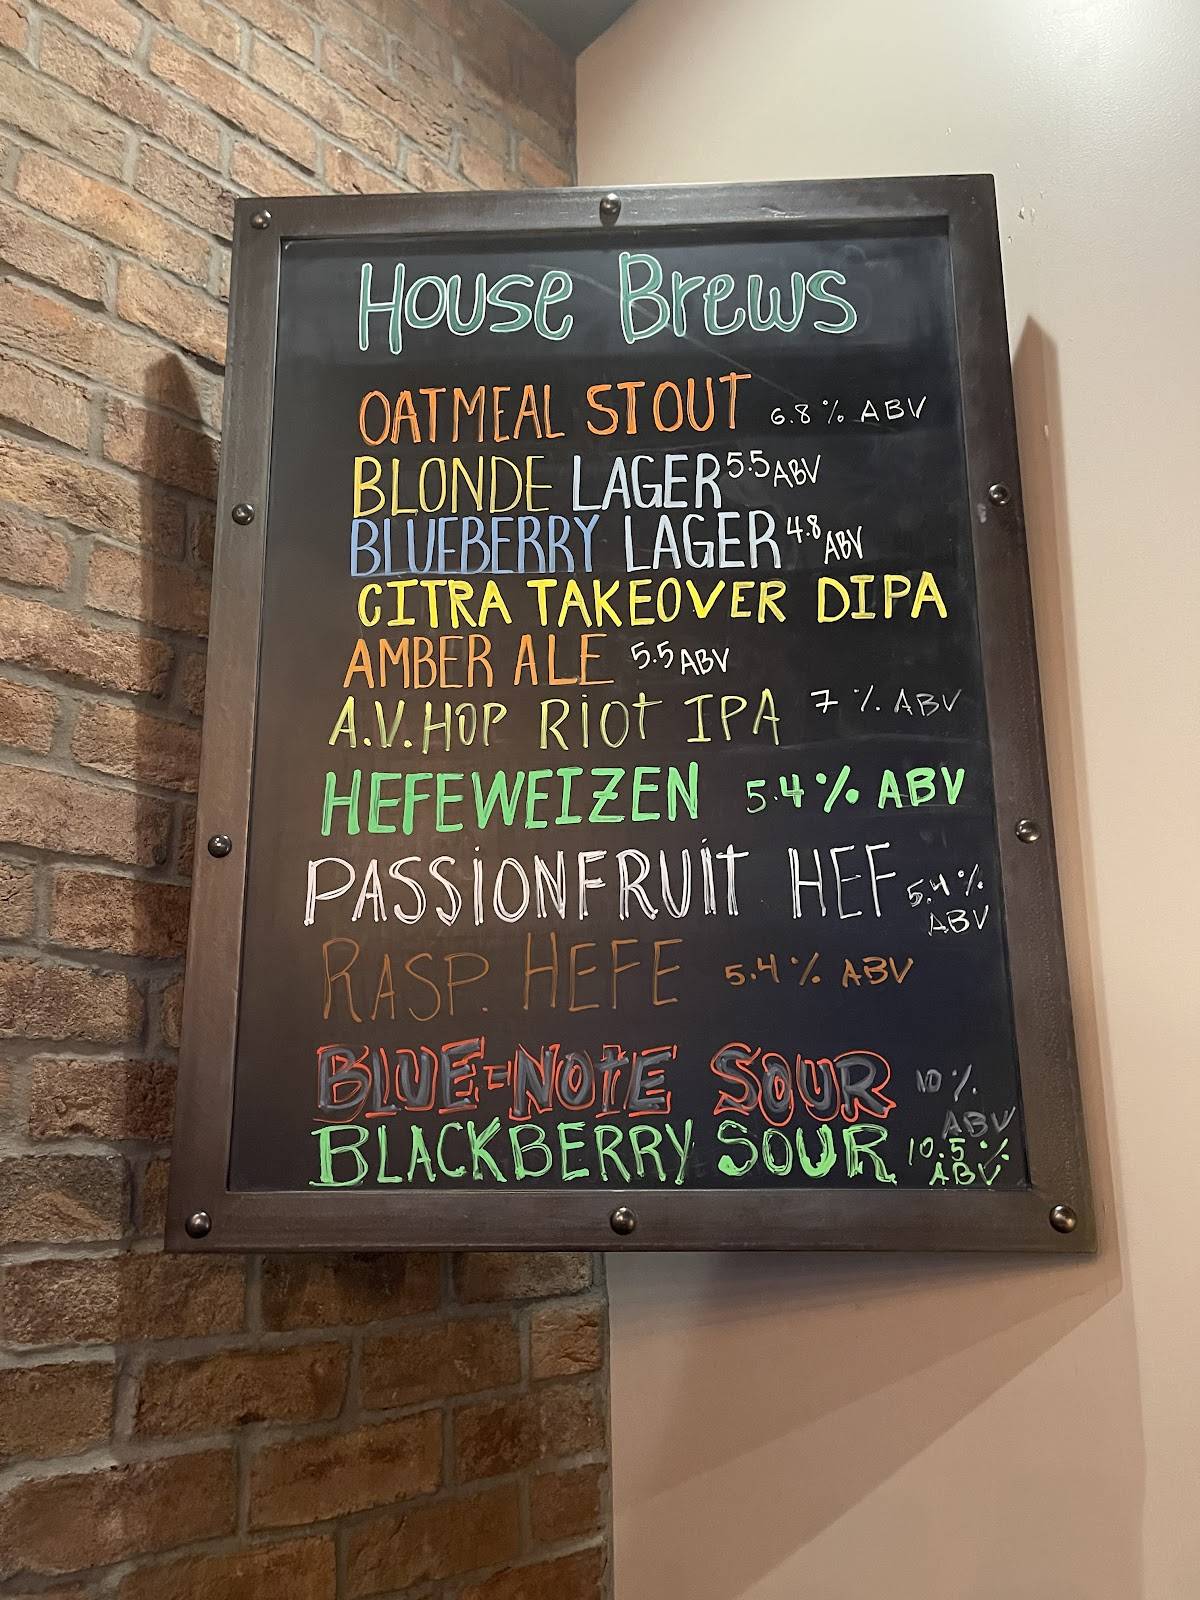 House Brews
OATMEAL STOUT 6.8% ABV
BLONDE LAGER 5.5 ABV
BLUEBERRY LAGER 4.8 ABV
CITRA TAKEOVER DIPA
AMBER ALE 5.5 ABV
A.V. HOP RiOt IPA 7% ABV
HEFEWEIZEN 5.4% ABV
PASSiONFRUiT HEF 5.4% ABV
RASP. HEFE 5.4% ABV
BLUE-NOtE SOUR 10% ABV
BLACKBERRY SOUR 10.5% ABV